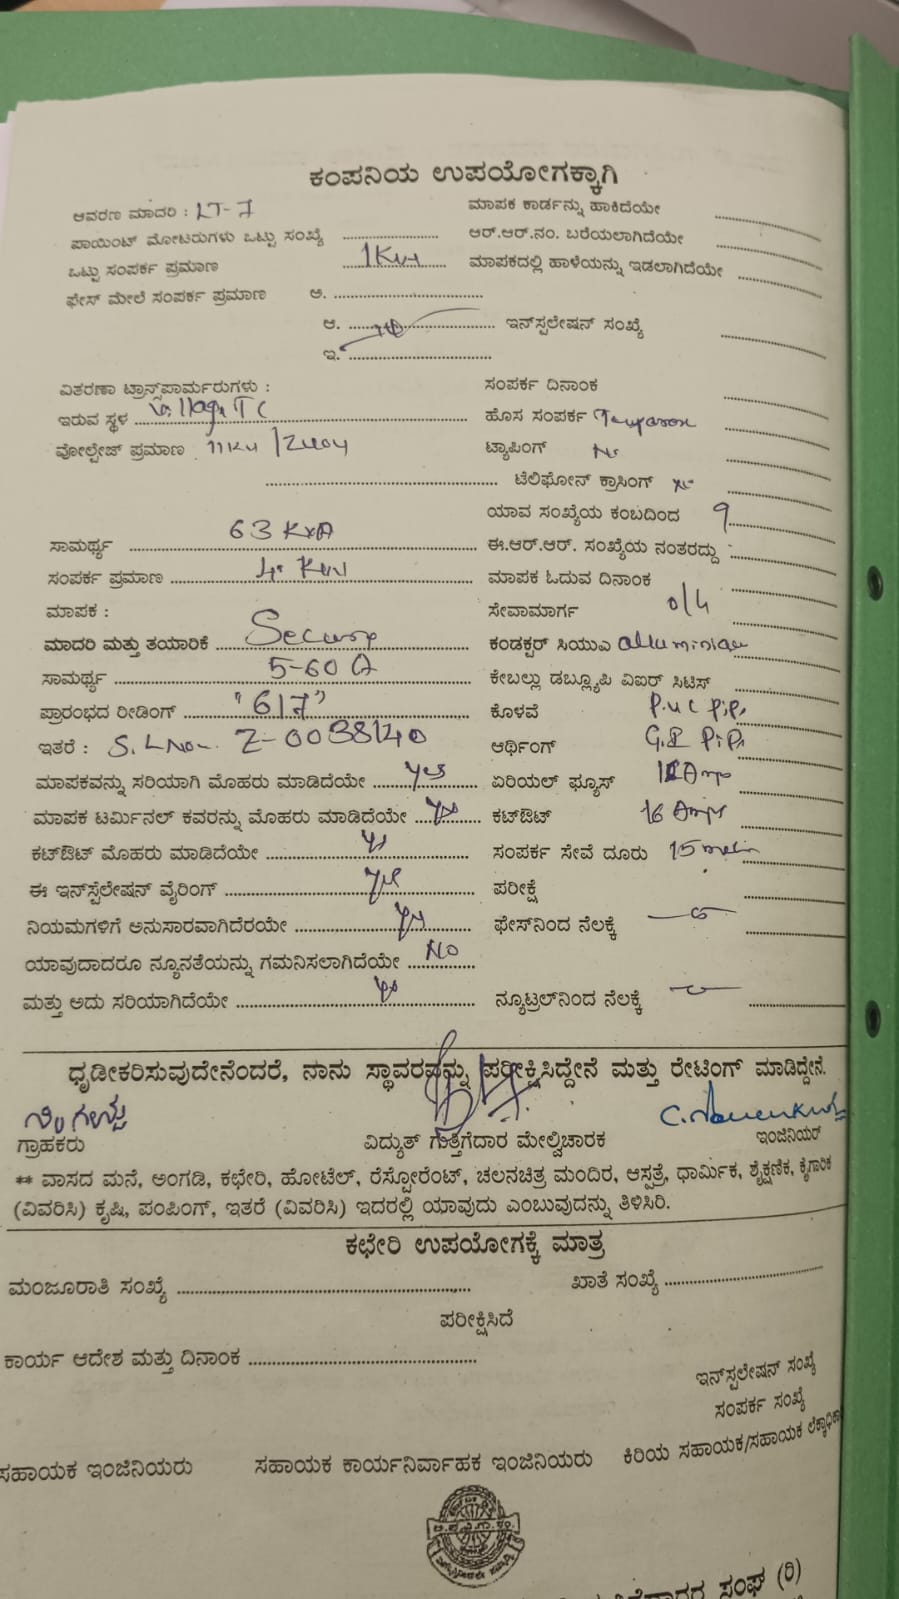 ಕಂಪನಿಯ ಉಪಯೋಗಕ್ಕಾಗಿ
ಆವರಣ ಮಾದರಿ : LT-7
ಮಾಪಕ ಕಾರ್ಡನ್ನು ಹಾಕಿದೆಯೇ
ಪಾಯಿಂಟ್ ಮೋಟರುಗಳು ಒಟ್ಟು ಸಂಖ್ಯೆ
ಆರ್.ಆರ್.ನಂ. ಬರೆಯಲಾಗಿದೆಯೇ
ಒಟ್ಟು ಸಂಪರ್ಕ ಪ್ರಮಾಣ 1Kw
ಮಾಪಕದಲ್ಲಿ ಹಾಳೆಯನ್ನು ಇಡಲಾಗಿದೆಯೇ
ಫೇಸ್ ಮೇಲೆ ಸಂಪರ್ಕ ಪ್ರಮಾಣ ಅ.
ಆ. ಇನ್‌ಸ್ಪಲೇಷನ್ ಸಂಖ್ಯೆ
ಇ.
ವಿತರಣಾ ಟ್ರಾನ್ಸ್‌ಪಾರ್ಮರುಗಳು :
ಸಂಪರ್ಕ ದಿನಾಂಕ
ಇರುವ ಸ್ಥಳ Village TC
ಹೊಸ ಸಂಪರ್ಕ
ವೋಲ್ಟೇಜ್ ಪ್ರಮಾಣ 11KV /
ಟ್ಯಾಪಿಂಗ್ No
ಟೆಲಿಫೋನ್ ಕ್ರಾಸಿಂಗ್
ಯಾವ ಸಂಖ್ಯೆಯ ಕಂಬದಿಂದ 9
ಸಾಮರ್ಥ್ಯ 63 KVA
ಈ.ಆರ್.ಆರ್. ಸಂಖ್ಯೆಯ ನಂತರದ್ದು
ಸಂಪರ್ಕ ಪ್ರಮಾಣ
ಮಾಪಕ ಓದುವ ದಿನಾಂಕ
ಮಾಪಕ :
ಸೇವಾಮಾರ್ಗ o/h
ಮಾದರಿ ಮತ್ತು ತಯಾರಿಕೆ Secure
ಕಂಡಕ್ಟರ್ ಸಿಯುಎ
ಸಾಮರ್ಥ್ಯ 5-60 A
ಕೇಬಲ್ಲು ಡಬ್ಲ್ಯೂಪಿ ವಿಐರ್ ಸಿಟಿಸ್
ಪ್ರಾರಂಭದ ರೀಡಿಂಗ್ "617"
ಕೊಳವೆ P.V.C Pipe
ಇತರೆ : S.L No- Z-0038140
ಆರ್ಥಿಂಗ್ G.I Pipe
ಮಾಪಕವನ್ನು ಸರಿಯಾಗಿ ಮೊಹರು ಮಾಡಿದೆಯೇ Yes
ಏರಿಯಲ್ ಫ್ಯೂಸ್ Amp
ಮಾಪಕ ಟರ್ಮಿನಲ್ ಕವರನ್ನು ಮೊಹರು ಮಾಡಿದೆಯೇ Yes
ಕಟ್‌ಔಟ್ 16 Amps
ಕಟ್‌ಔಟ್ ಮೊಹರು ಮಾಡಿದೆಯೇ Yes
ಸಂಪರ್ಕ ಸೇವೆ ದೂರು 15 meter
ಈ ಇನ್‌ಸ್ಟೆಲೇಷನ್ ವೈರಿಂಗ್ Yes
ಪರೀಕ್ಷೆ
ನಿಯಮಗಳಿಗೆ ಅನುಸಾರವಾಗಿದೆರಯೇ Yes
ಫೇಸ್‌ನಿಂದ ನೆಲಕ್ಕೆ
ಯಾವುದಾದರೂ ನ್ಯೂನತೆಯನ್ನು ಗಮನಿಸಲಾಗಿದೆಯೇ No
ಮತ್ತು ಅದು ಸರಿಯಾಗಿದೆಯೇ Yes
ನ್ಯೂಟ್ರಲ್‌ನಿಂದ ನೆಲಕ್ಕೆ
ಧೃಡೀಕರಿಸುವುದೇನೆಂದರೆ, ನಾನು ಸ್ಥಾವರವನ್ನು ಪರೀಕ್ಷಿಸಿದ್ದೇನೆ ಮತ್ತು ರೇಟಿಂಗ್ ಮಾಡಿದ್ದೇನೆ.
ಗ್ರಾಹಕರು
ವಿದ್ಯುತ್ ಗುತ್ತಿಗೆದಾರ ಮೇಲ್ವಿಚಾರಕ
ಇಂಜಿನಿಯರ್
** ವಾಸದ ಮನೆ, ಅಂಗಡಿ, ಕಛೇರಿ, ಹೋಟೆಲ್, ರೆಸ್ಟೋರೆಂಟ್, ಚಲನಚಿತ್ರ ಮಂದಿರ, ಆಸ್ಪತ್ರೆ, ಧಾರ್ಮಿಕ, ಶೈಕ್ಷಣಿಕ, ಕೈಗಾರಿಕ
(ವಿವರಿಸಿ) ಕೃಷಿ, ಪಂಪಿಂಗ್, ಇತರೆ (ವಿವರಿಸಿ) ಇದರಲ್ಲಿ ಯಾವುದು ಎಂಬುವುದನ್ನು ತಿಳಿಸಿರಿ.
ಕಛೇರಿ ಉಪಯೋಗಕ್ಕೆ ಮಾತ್ರ
ಮಂಜೂರಾತಿ ಸಂಖ್ಯೆ
ಖಾತೆ ಸಂಖ್ಯೆ
ಪರೀಕ್ಷಿಸಿದೆ
ಕಾರ್ಯ ಆದೇಶ ಮತ್ತು ದಿನಾಂಕ
ಇನ್‌ಸ್ಪಲೇಷನ್ ಸಂಖ್ಯೆ
ಸಂಪರ್ಕ ಸಂಖ್ಯೆ
ಸಹಾಯಕ ಇಂಜಿನಿಯರು
ಸಹಾಯಕ ಕಾರ್ಯನಿರ್ವಾಹಕ ಇಂಜಿನಿಯರು
ಕಿರಿಯ ಸಹಾಯಕ/ಸಹಾಯಕ ಲೆಕ್ಕಾಧಿಕಾ
ಸಂಘ (ರಿ)